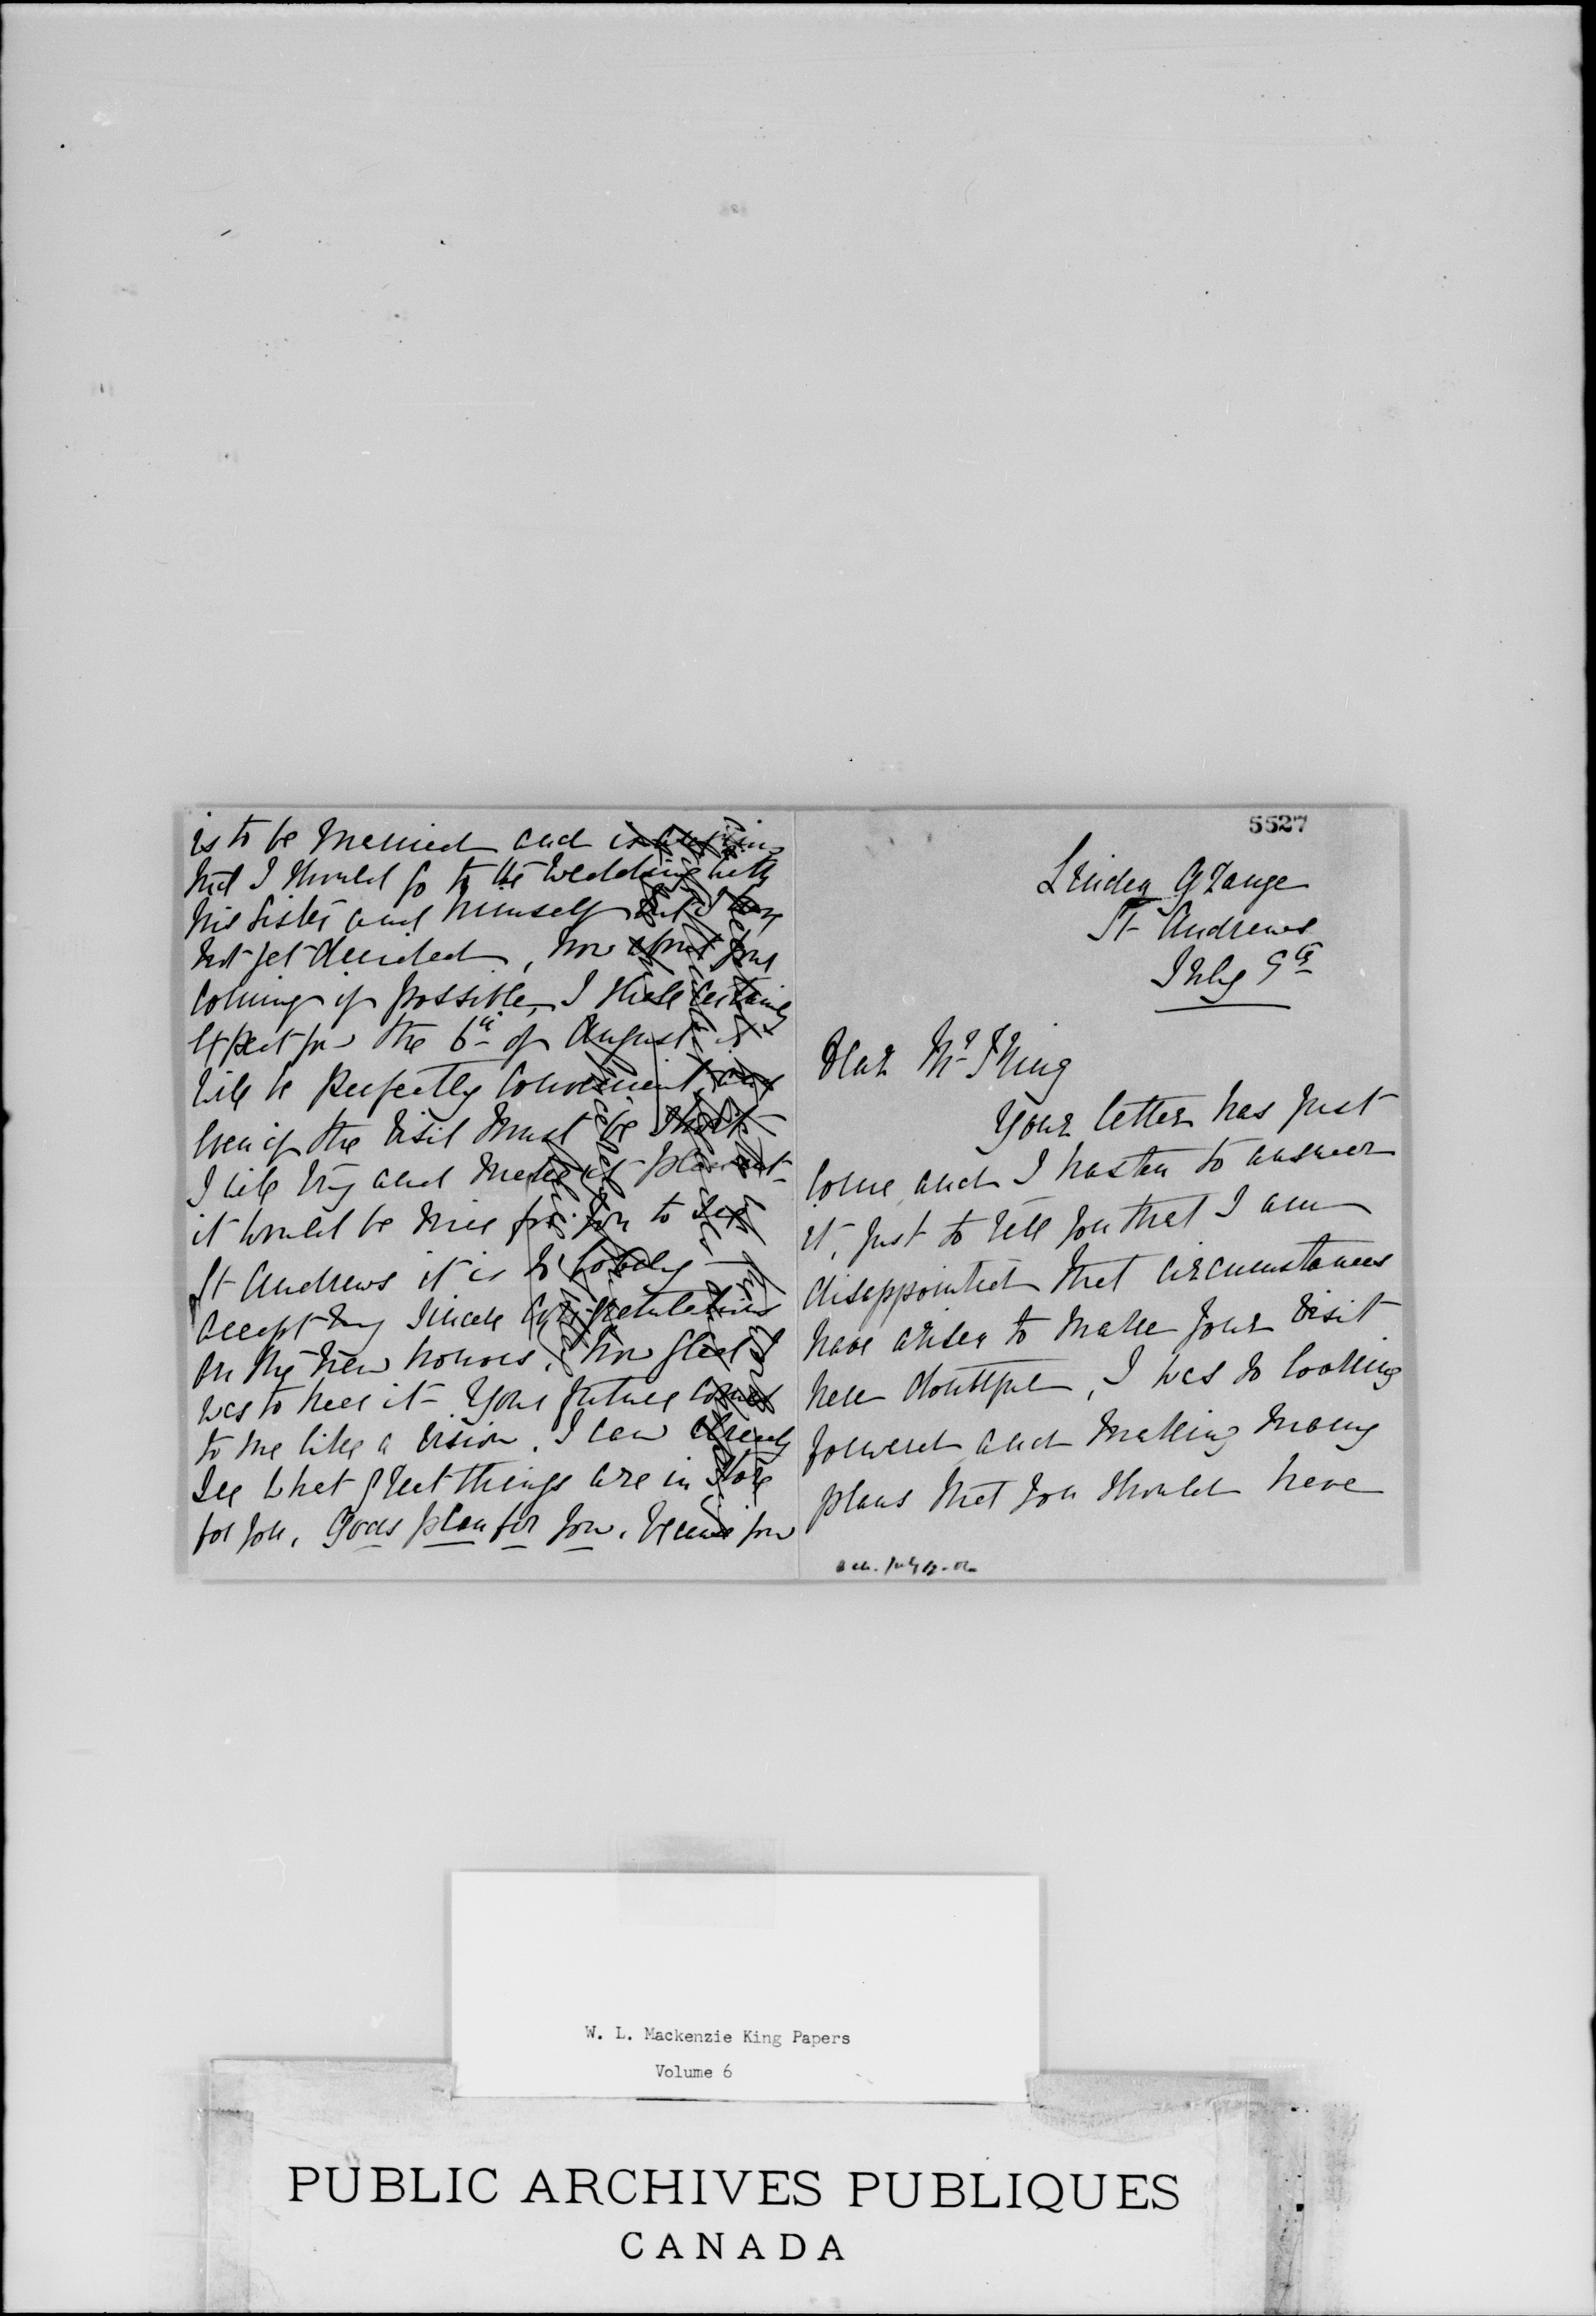 5527
Linden Grange
St Andrews
July 9th
Dear Mr King
Your letter has just
come and I hasten to answer
it, just to tell you that I am
disappointed that circumstances
have arisen to make your visit
here doubtful, I was so looking
forward and making many
plans that you should have
July
is to be married and is
that I should go to the wedding with
his sister and himself but I have
not yet decided, now about your
coming if possible, I shall certainly
expect you the 6th of August it
will be perfectly convenient, and
even if the visit must be short
I will try and make it pleasant
it would be nice for you to see
St Andrews it is so lovely
accept my sincere congratulations
on the new honors, how glad I
was to hear it - Your future comes
to me like a vision. I can already
see what great things are in store
for you, Gods plan for you, because you
W. L. Mackenzie King Papers
Volume 6
PUBLIC ARCHIVES PUBLIQUES
CANADA